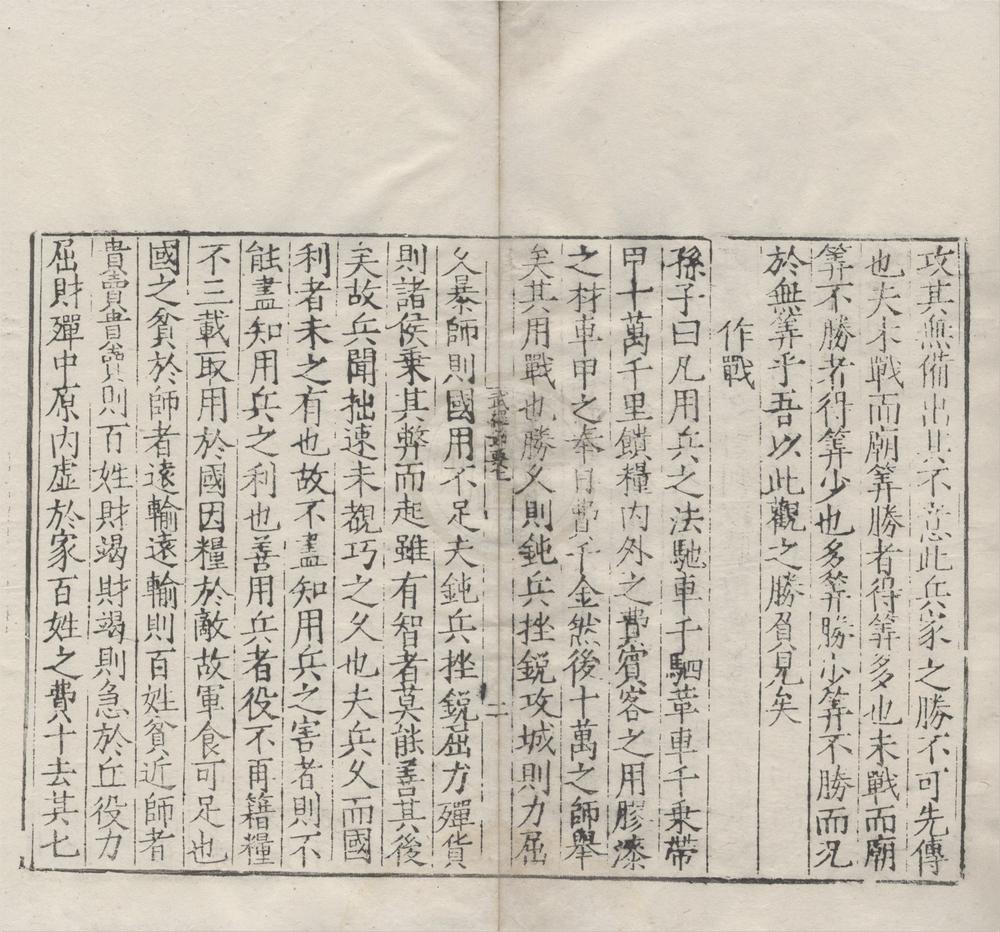 攻其無備出其不意此兵家之勝不可先傳
也夫未戰而廟筭勝者得筭多也未戰而廟
筭不勝者得筭少也多筭勝少筭不勝而况
於無筭乎吾以此觀之勝負見矣
作戰
孫子曰凡用兵之法馳車千駟革車千乗帶
甲十萬千里饋糧内外之費賓客之用膠漆
之材車甲之奉日費千金然後十萬之師舉
矣其用戰也勝乆則鈍兵挫鋭攻城則力屈
二
乆暴師則國用不足夫鈍兵挫鋭屈力殫貨
則諸侯乗其弊而起雖有智者莫能善其後
矣故兵聞拙速未覩巧之乆也夫兵乆而國
利者未之有也故不盡知用兵之害者則不
能盡知用兵之利也善用兵者役不再籍糧
不三載取用於國因糧於敵故軍食可足也
國之貧於師者遠輸遠輸則百姓貧近師者
貴賣貴賣則百姓財竭財竭則急於丘役力
屈財殫中原内虚於家百姓之費十去其七